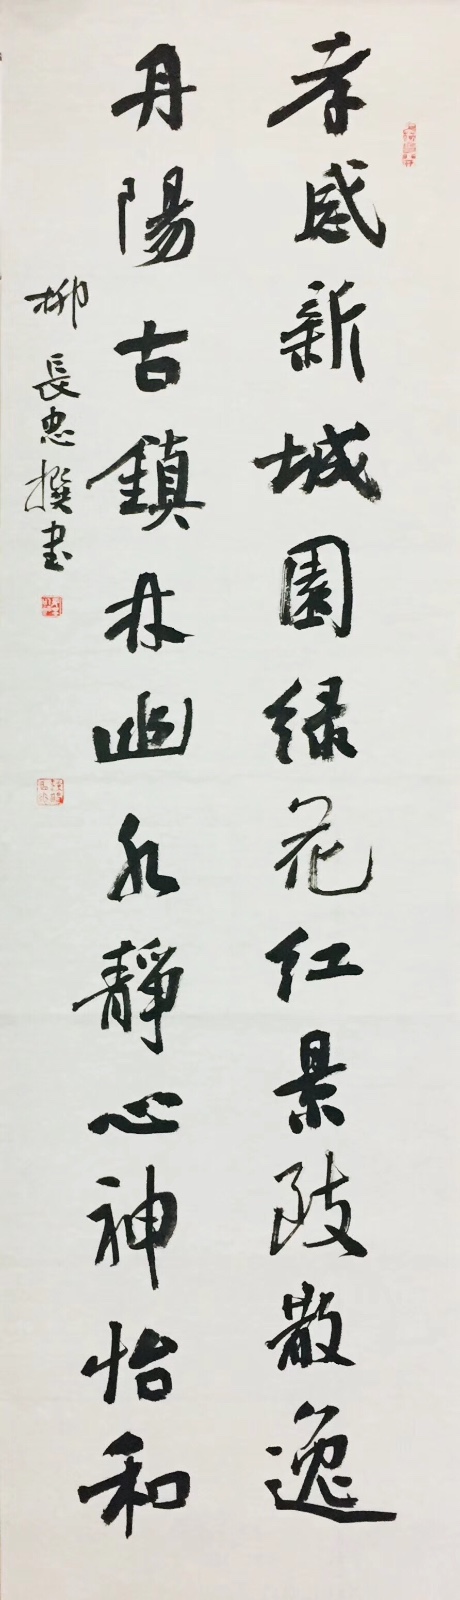 孝感新城園绿花红景致散逸
丹陽古鎮林幽水静心神怡和
柳長忠撰书